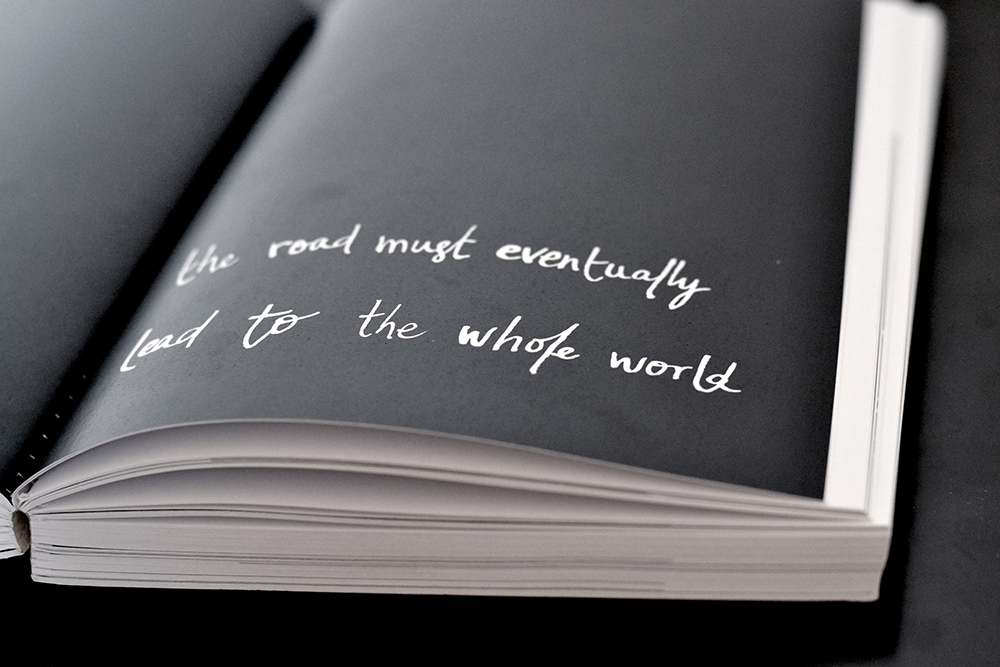 the road must eventually
lead to the whole world